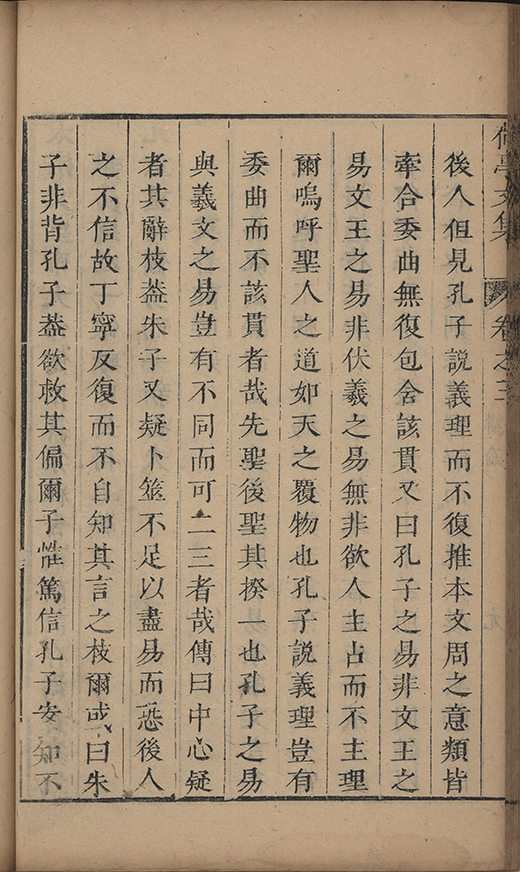 亭文集 卷之三
後人但見孔子說義理而不復推本文周之意類皆
牽合委曲無復包含該貫又曰孔子之易非文王之
易文王之易非伏羲之易無非欲人主占而不主理
爾嗚呼聖人之道如天之覆物也孔子說義理豈有
委曲而不該貫者哉先聖後聖其揆一也孔子之易
與羲文之易豈有不同而可二三者哉傳曰中心疑
者其辭枝葢朱子又疑卜筮不足以盡易而恐後人
之不信故丁寧反復而不自知其言之枝爾或曰朱
子非背孔子葢欲救其偏爾子惟篤信孔子安知不